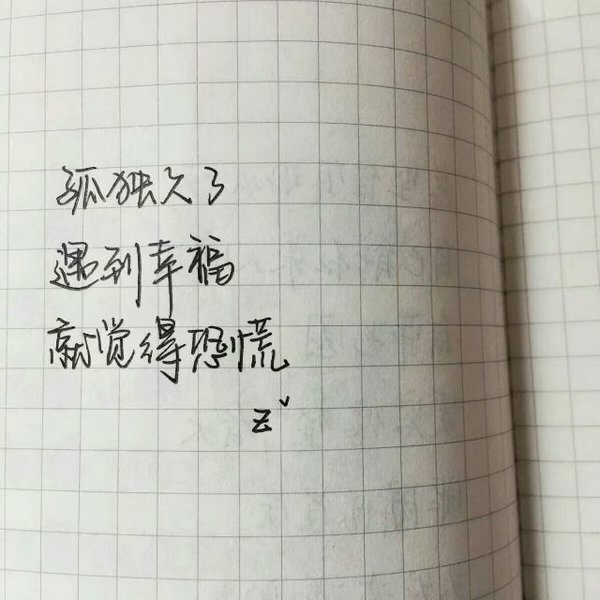 孤独久了
遇到幸福
就觉得恐慌
zv